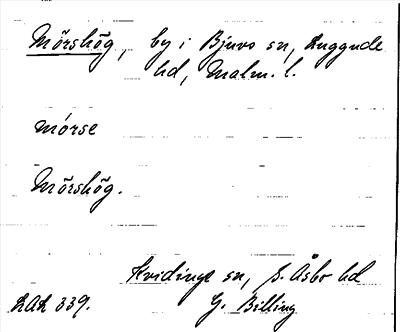 Mörshög, by i Bjuvs sn, Luggude
hd, Malm. l.
mórse
Mörshög.
Kvidinge sn, S. Åsbo hd
LAL 339. G. Billing